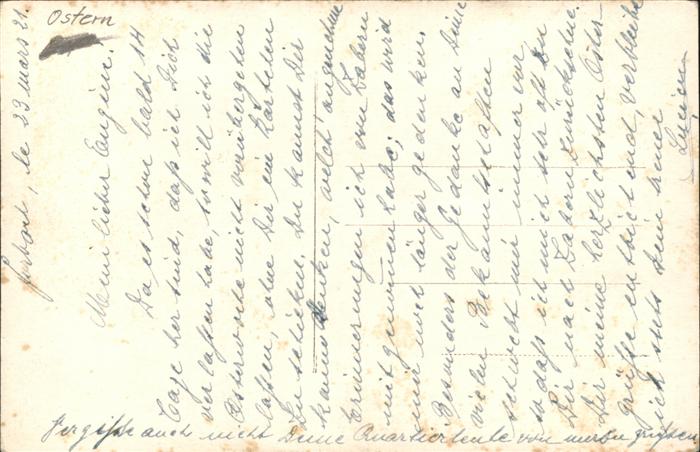 Ostern
le 23 mars 21.
Mein lieber Eugène.
Da es schon bald 14
Tage her sind, daß ich Dich
verlassen habe, so will ich die
Osterwoche nicht vorübergehen
lassen, ohne Dir ein Kärtchen
zu schicken. Du kannst Dir
kaum denken, welch' angenehme
Erinnerungen ich von Zabern
mitgenommen habe; das wird
mir noch länger gedenken.
Besonders der Gedanke an Deine
vielen Bekanntschaften
schwebt mir immer vor,
so daß ich mich sehr oft zu
Dir nach Zabern zurücksehne.
Dir meine herzlichsten Oster-
grüße entrichtend, verbleibe
ich stets Dein treuer
Lucien
Vergiße auch nicht Deine Quartierleute von mir zu grüßen